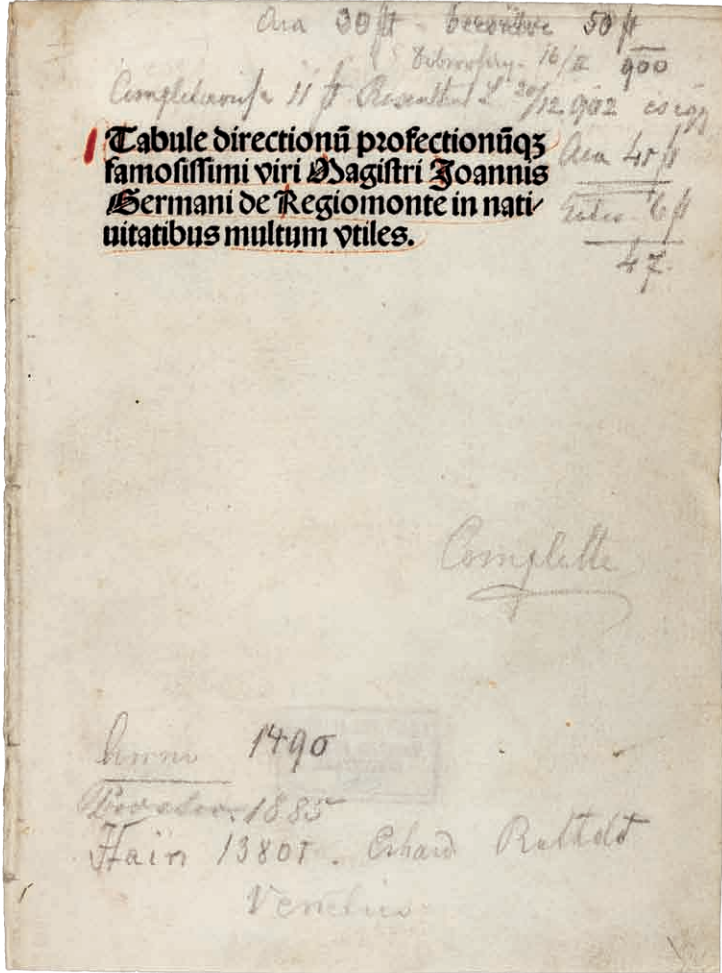 Ara 30 ft 50 ft
16/II 900
11 ft Rosenthal L 20/12 902
Tabule directionū profectionūqꝫ
famosissimi viri Magistri Joannis
Germani de Regiomonte in nati/
uitatibus multum vtiles.
Ara 41 ft
6 ft
47.
Complette
Anno 1490
1885
Hain 13801. Erhard Ratdolt
Venetiis